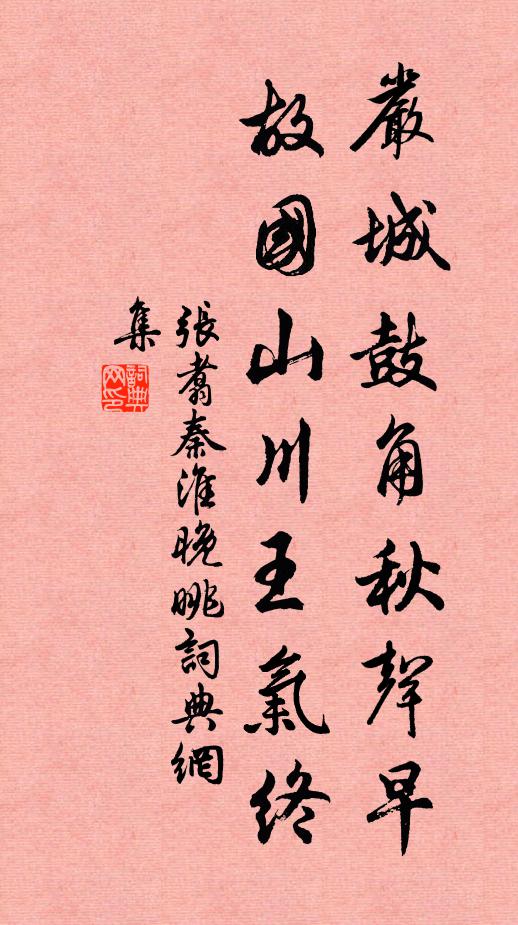 嚴城鼓角秋聲早
故國山川王氣終
張翥秦淮晚眺詞典網
集
詞典网印